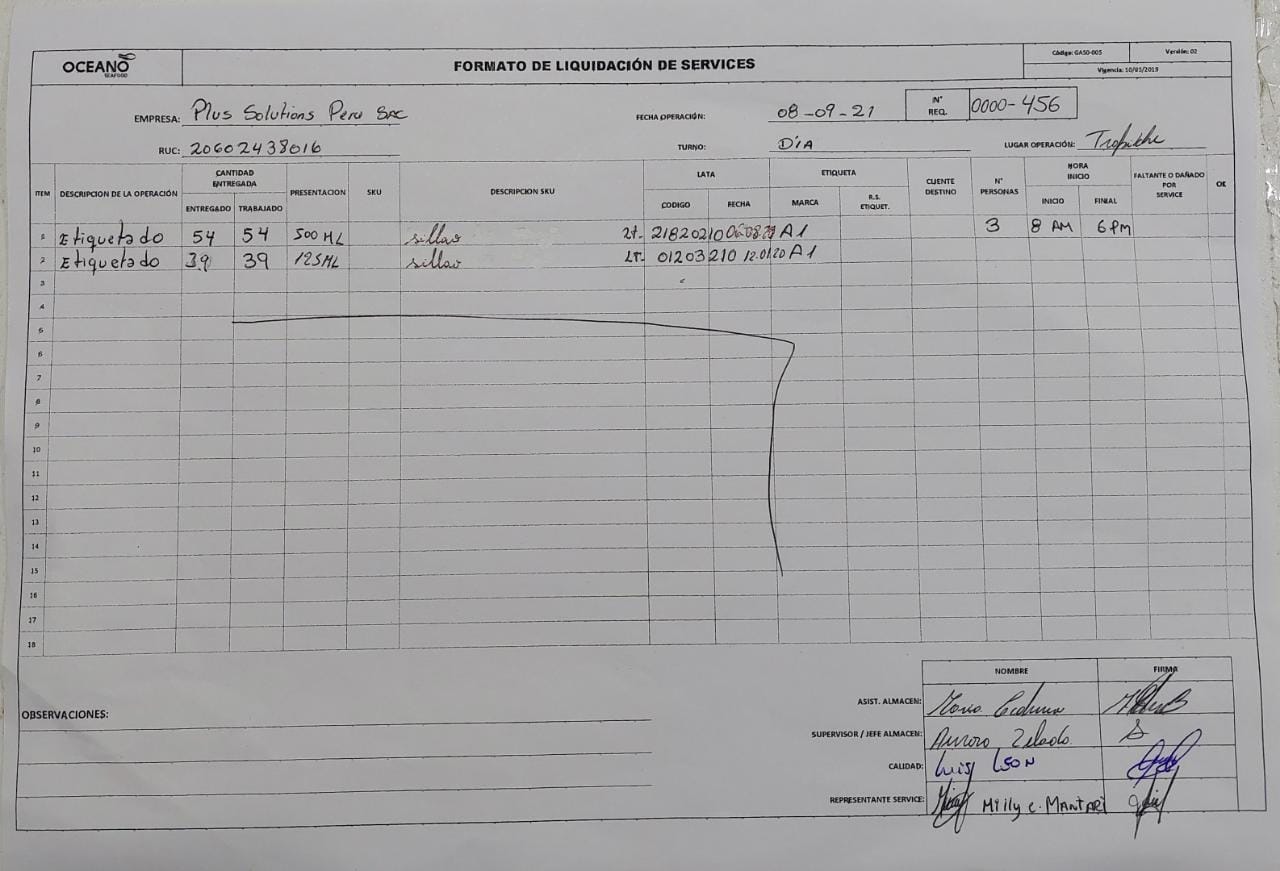 OCEANO
SEAFOOD
FORMATO DE LIQUIDACIÓN DE SERVICES
Código: GASO-005 Versión: 02
Vigencia: 10/01/2019
EMPRESA: Plus Solutions Peru SAC FECHA OPERACIÓN: 08-09-21 N° REQ. 0000-456
RUC: 20602438016 TURNO: DÍA LUGAR OPERACIÓN:
ITEM DESCRIPCION DE LA OPERACIÓN CANTIDAD ENTREGADA PRESENTACION SKU DESCRIPCION SKU LATA ETIQUETA CLIENTE DESTINO N° PERSONAS HORA INICIO FALTANTE O DAÑADO POR SERVICE OK
ENTREGADO TRABAJADO CODIGO FECHA MARCA R.S ETIQUET. INICIO FINIAL
1 Etiquetado 54 54 500 ML sillao 2t. 21820210 A1 3 8 AM 6 pm
2 Etiquetado 39 39 125ML sillao 2t. 01203210 12.01.20 A1
3
4
5
6
7
8
9
10
11
12
13
14
15
16
17
18
OBSERVACIONES:
NOMBRE FIRMA
ASIST. ALMACEN:
SUPERVISOR / JEFE ALMACEN:
CALIDAD: Luis Leon
REPRESENTANTE SERVICE: Milly C. MANTARI